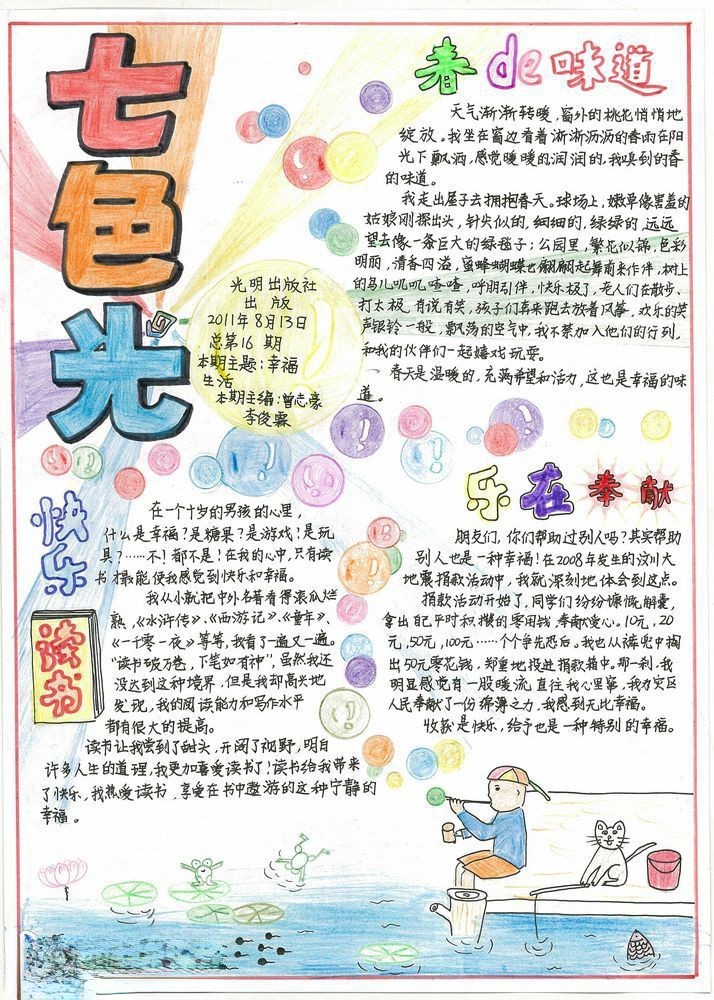 七色光
光明出版社
出 版
2011年8月13日
总第16 期
本期主题:幸福
生活
本期主编:曾志豪
李俊霖
春de味道
天气渐渐转暖,窗外的桃花悄悄地
绽放。我坐在窗边看着淅淅沥沥的春雨在阳
光下飘洒,感觉暖暖的润润的,我嗅到的春
的味道。
我走出屋子去拥抱春天。球场上,嫩草像害羞的
姑娘刚探出头,针尖似的,细细的,绿绿的,远远
望去像一条巨大的绿毯子;公园里,繁花似锦,色彩
明丽,清香四溢,蜜蜂蝴蝶也翩翩起舞前来作伴,树上
的鸟儿叽叽喳喳,呼朋引伴,快乐极了,老人们在散步、
打太极,有说有笑,孩子们喜来跑去放着风筝,欢乐的笑
声银铃一般,飘荡的空气中,我不禁加入他们的行列,
和我的伙伴们一起嬉戏玩耍。
春天是温暖的,充满希望和活力,这也是幸福的味
道。
快乐
读书
在一个十岁的男孩的心里,
什么是幸福?是糖果?是游戏!是玩
具?……不!都不是!在我的心中,只有读
书才最能使我感觉到快乐和幸福。
我从小就把中外名著看得滚瓜烂
熟,《水浒传》、《西游记》、《童年》、
《一千零一夜》等等,我看了一遍又一遍。
“读书破万卷,下笔如有神”,虽然我还
没达到这种境界,但是我却高兴地
发现,我的阅读能力和写作水平
都有很大的提高。
读书让我尝到了甜头,开阔了视野,明白
许多人生的道理,我更加喜爱读书了!读书给我带来
了快乐,我热爱读书,享受在书中遨游的这种宁静的
幸福。
乐在奉献
朋友们,你们帮助过别人吗?其实帮助
别人也是一种幸福!在2008年发生的汶川大
地震捐款活动中,我就深刻地体会到这点。
捐款活动开始了,同学们纷纷慷慨解囊,
拿出自己平时积攒的零用钱,奉献爱心。10元,20
元,50元,100元……个个争先恐后。我也从裤兜中掏
出50元零花钱,郑重地投进捐款箱中。那一刹,我
明显感觉有一股暖流,直往我心里窜,我为灾区
人民奉献了一份绵薄之力,我感到无比幸福。
收获是快乐,给予也是一种特别的幸福。